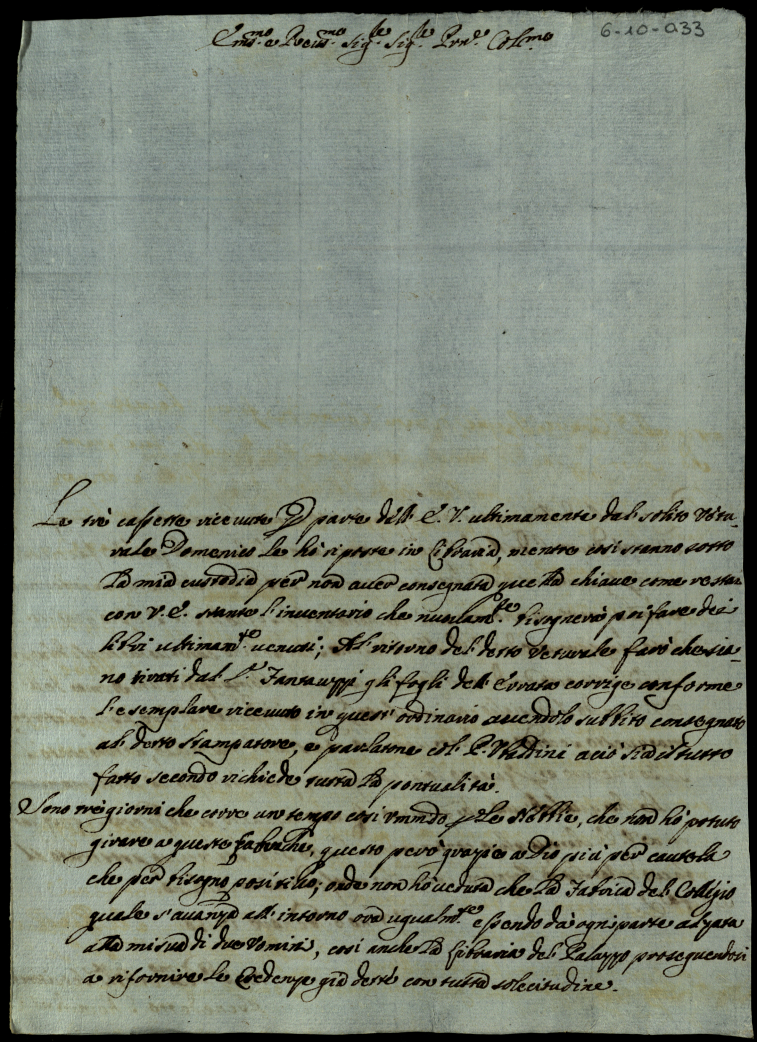 6-10-033
Em.mo e Reu.mo Sig.re Sig.re Prn.e Col.mo
Le trè cassette riceuute p parte dell' E. V. ultimamente dal solito Vetu-
rale Domenico le hò riposte in libraria, mentre così stanno sotto
la mia custodia per non auer consegnata quella chiaue come restai
con V. E. stante l'inuentario che nuouam.te bisognerà poi fare dei
libri ultimam.te uenuti; Al ritorno del detto Veturale farò che sia-
no tirati dal S.r Fantauzzi gli fogli dell' Errata corrige conforme
l'esemplare riceuuto in quest' ordinario auendolo subbito consegnato
al detto stampatore, e parlatone col P. Valdini acciò sia il tutto
fatto secondo richiede tutta la pontualità.
Sono trè giorni che corre un tempo così umido p le Nebbie, che non hò potuto
girare a queste fabriche, questo però grazie a Dio più per cautela
che per bisogno positiuo; onde non hò ueduta che la Fabrica del Collegio
quale s'auanza all' intorno ora ugualm.te essendo da ogni parte alzata
alla misura di due Vomini, così anche la libraria del Palazzo proseguendosi
a rifornire le Credenze già dette con tutta sollecitudine.